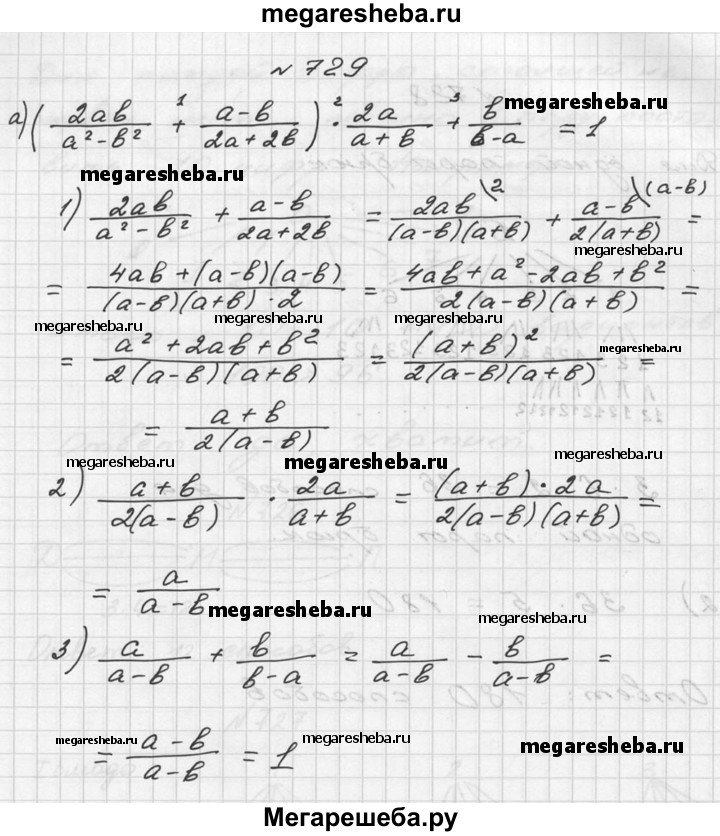 megaresheba.ru
№ 729
а) ( 2ab / (a² - b²) + (a - b) / (2a + 2b) ) · 2a / (a + b) + b / (b - a) = 1
1 2 3
megaresheba.ru
megaresheba.ru
1) 2ab / (a² - b²) + (a - b) / (2a + 2b) = 2ab \2 / ((a - b)(a + b)) + (a - b) \(a - b) / (2(a + b)) =
megaresheba.ru
= (4ab + (a - b)(a - b)) / ((a - b)(a + b) · 2) = (4ab + a² - 2ab + b²) / (2(a - b)(a + b)) =
megaresheba.ru megaresheba.ru megaresheba.ru
= (a² + 2ab + b²) / (2(a - b)(a + b)) = (a + b)² / (2(a - b)(a + b)) =
megaresheba.ru
= (a + b) / (2(a - b))
megaresheba.ru megaresheba.ru megaresheba.ru
2) (a + b) / (2(a - b)) · 2a / (a + b) = ((a + b) · 2a) / (2(a - b)(a + b)) =
= a / (a - b)
megaresheba.ru megaresheba.ru
3) a / (a - b) + b / (b - a) = a / (a - b) - b / (a - b) =
= (a - b) / (a - b) = 1
megaresheba.ru megaresheba.ru megaresheba.ru
Мегарешеба.ру